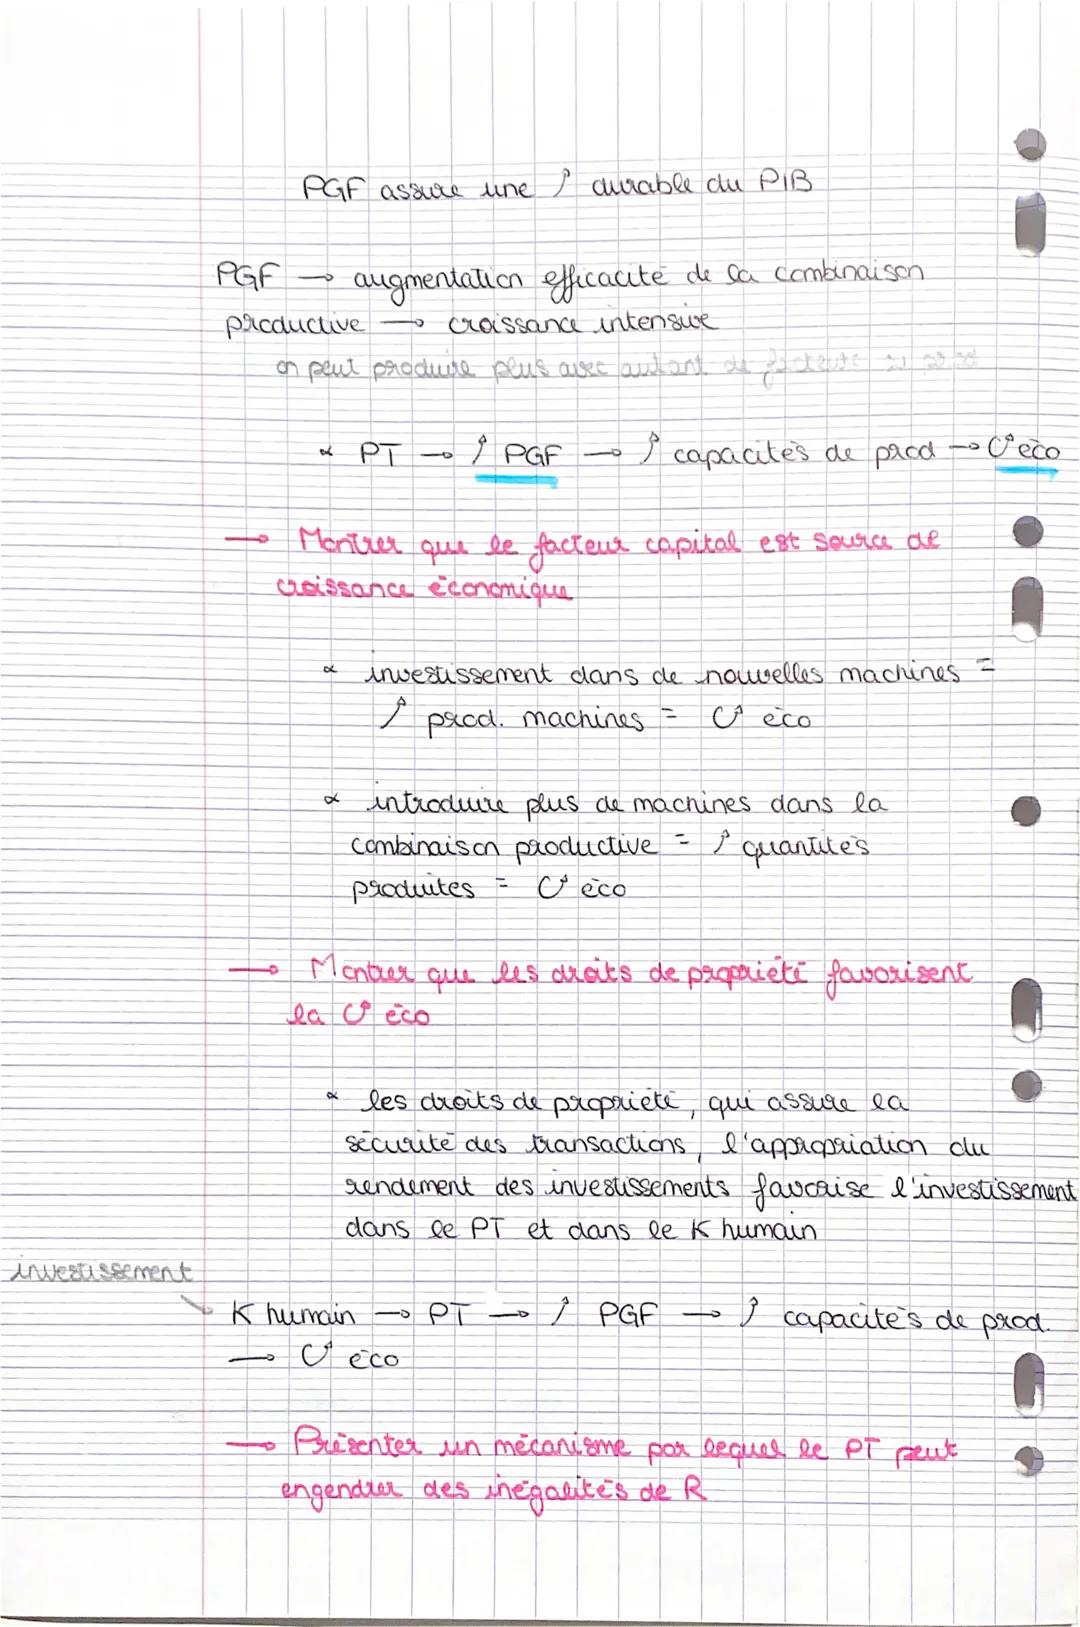 PGF assure une ↗ durable du PIB
PGF → augmentation efficacité de la combinaison
productive → croissance intensive
on peut produire plus avec autant de
∝ PT → ↗ PGF → ↗ capacités de prod → C° éco
→ Montrer que le facteur capital est source de
croissance économique
∝ investissement dans de nouvelles machines =
↗ prod. machines = C° éco
∝ introduire plus de machines dans la
combinaison productive = ↗ quantités
produites = C° éco
→ Montrer que les droits de propriété favorisent
la C° éco
∝ les droits de propriété, qui assure la
sécurité des transactions, l'appropriation du
rendement des investissements favorise l'investissement
dans le PT et dans le K humain
investissement
K humain → PT → ↗ PGF → ↗ capacités de prod.
→ C° éco
→ Présenter un mécanisme par lequel le PT peut
engendrer des inégalités de R